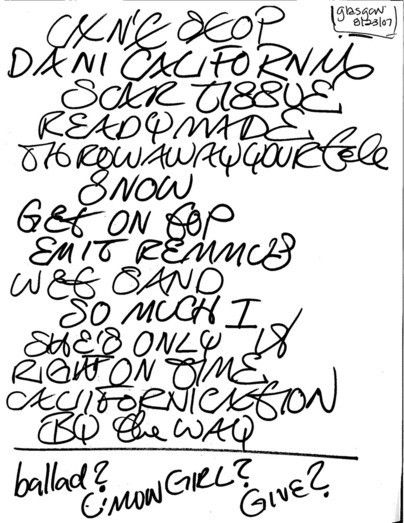 glasgow
8/23/07
CAN'T STOP
DANI CALIFORNIA
SCAR TISSUE
READYMADE
THROW AWAY YOUR tele
SNOW
GET ON TOP
EMIT REMMUS
WET SAND
SO MUCH I
SHE'S ONLY 18
RIGHT ON TIME
CALIFORNICATION
BY the WAY
ballad?
C'MON GIRL?
GIVE?